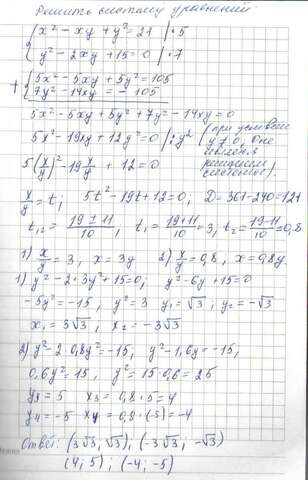 Решить систему уравнений:
{ x² - xy + y² = 21 | · 5
y² - 2xy + 15 = 0 | · 7
+ { 5x² - 5xy + 5y² = 105
7y² - 14xy = - 105
5x² - 5xy + 5y² + 7y² - 14xy = 0
5x² - 19xy + 12y² = 0 | : y² (при условии
y ≠ 0, 0 не
явл. 
решением
системы).
5(x/y)² - 19 x/y + 12 = 0
x/y = t, 5t² - 19t + 12 = 0, D = 361 - 240 = 121
t₁,₂ = (19 ± 11)/10, t₁ = (19+11)/10 = 3, t₂ = (19-11)/10 = 0,8
1) x/y = 3, x = 3y 2) x/y = 0,8, x = 0,8y
1) y² - 2 · 3y² + 15 = 0, y² - 6y + 15 = 0
-5y² = -15, y² = 3 y₁ = √3; y₂ = -√3
x₁ = 3√3, x₂ = -3√3
2) y² - 2·0,8y² = -15, y² - 1,6y = -15,
0,6y² = 15, y² = 15:0,6 = 25
y₃ = 5 x₃ = 0,8 · 5 = 4
y₄ = -5 x₄ = 0,8 · (-5) = -4
Ответ: (3√3, √3), (-3√3; -√3)
(4; 5); (-4; -5)